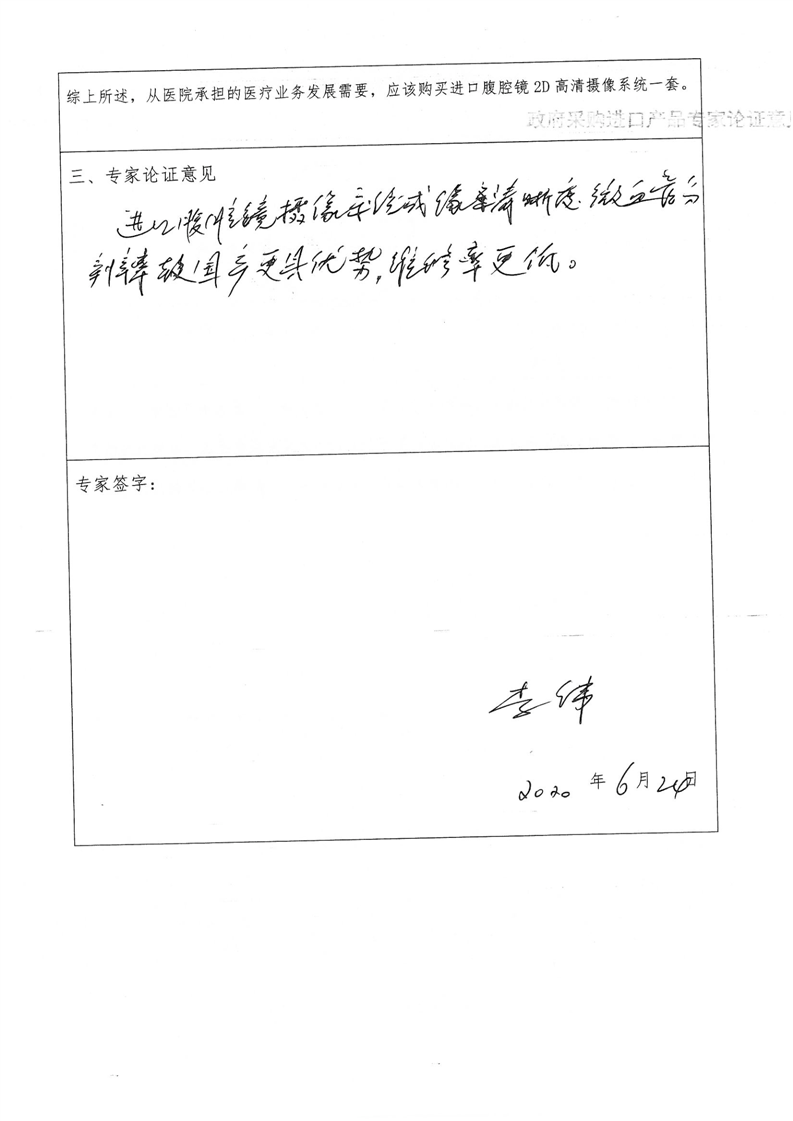 综上所述，从医院承担的医疗业务发展需要，应该购买进口腹腔镜 2D 高清摄像系统一套。
政府采购进口产品专家论证意见
三、专家论证意见
进口腹腔镜摄像系统成像清晰度、微血管分
辨率较国产更具优势，维修率更低。
专家签字：
李伟
2020 年 6 月 24 日